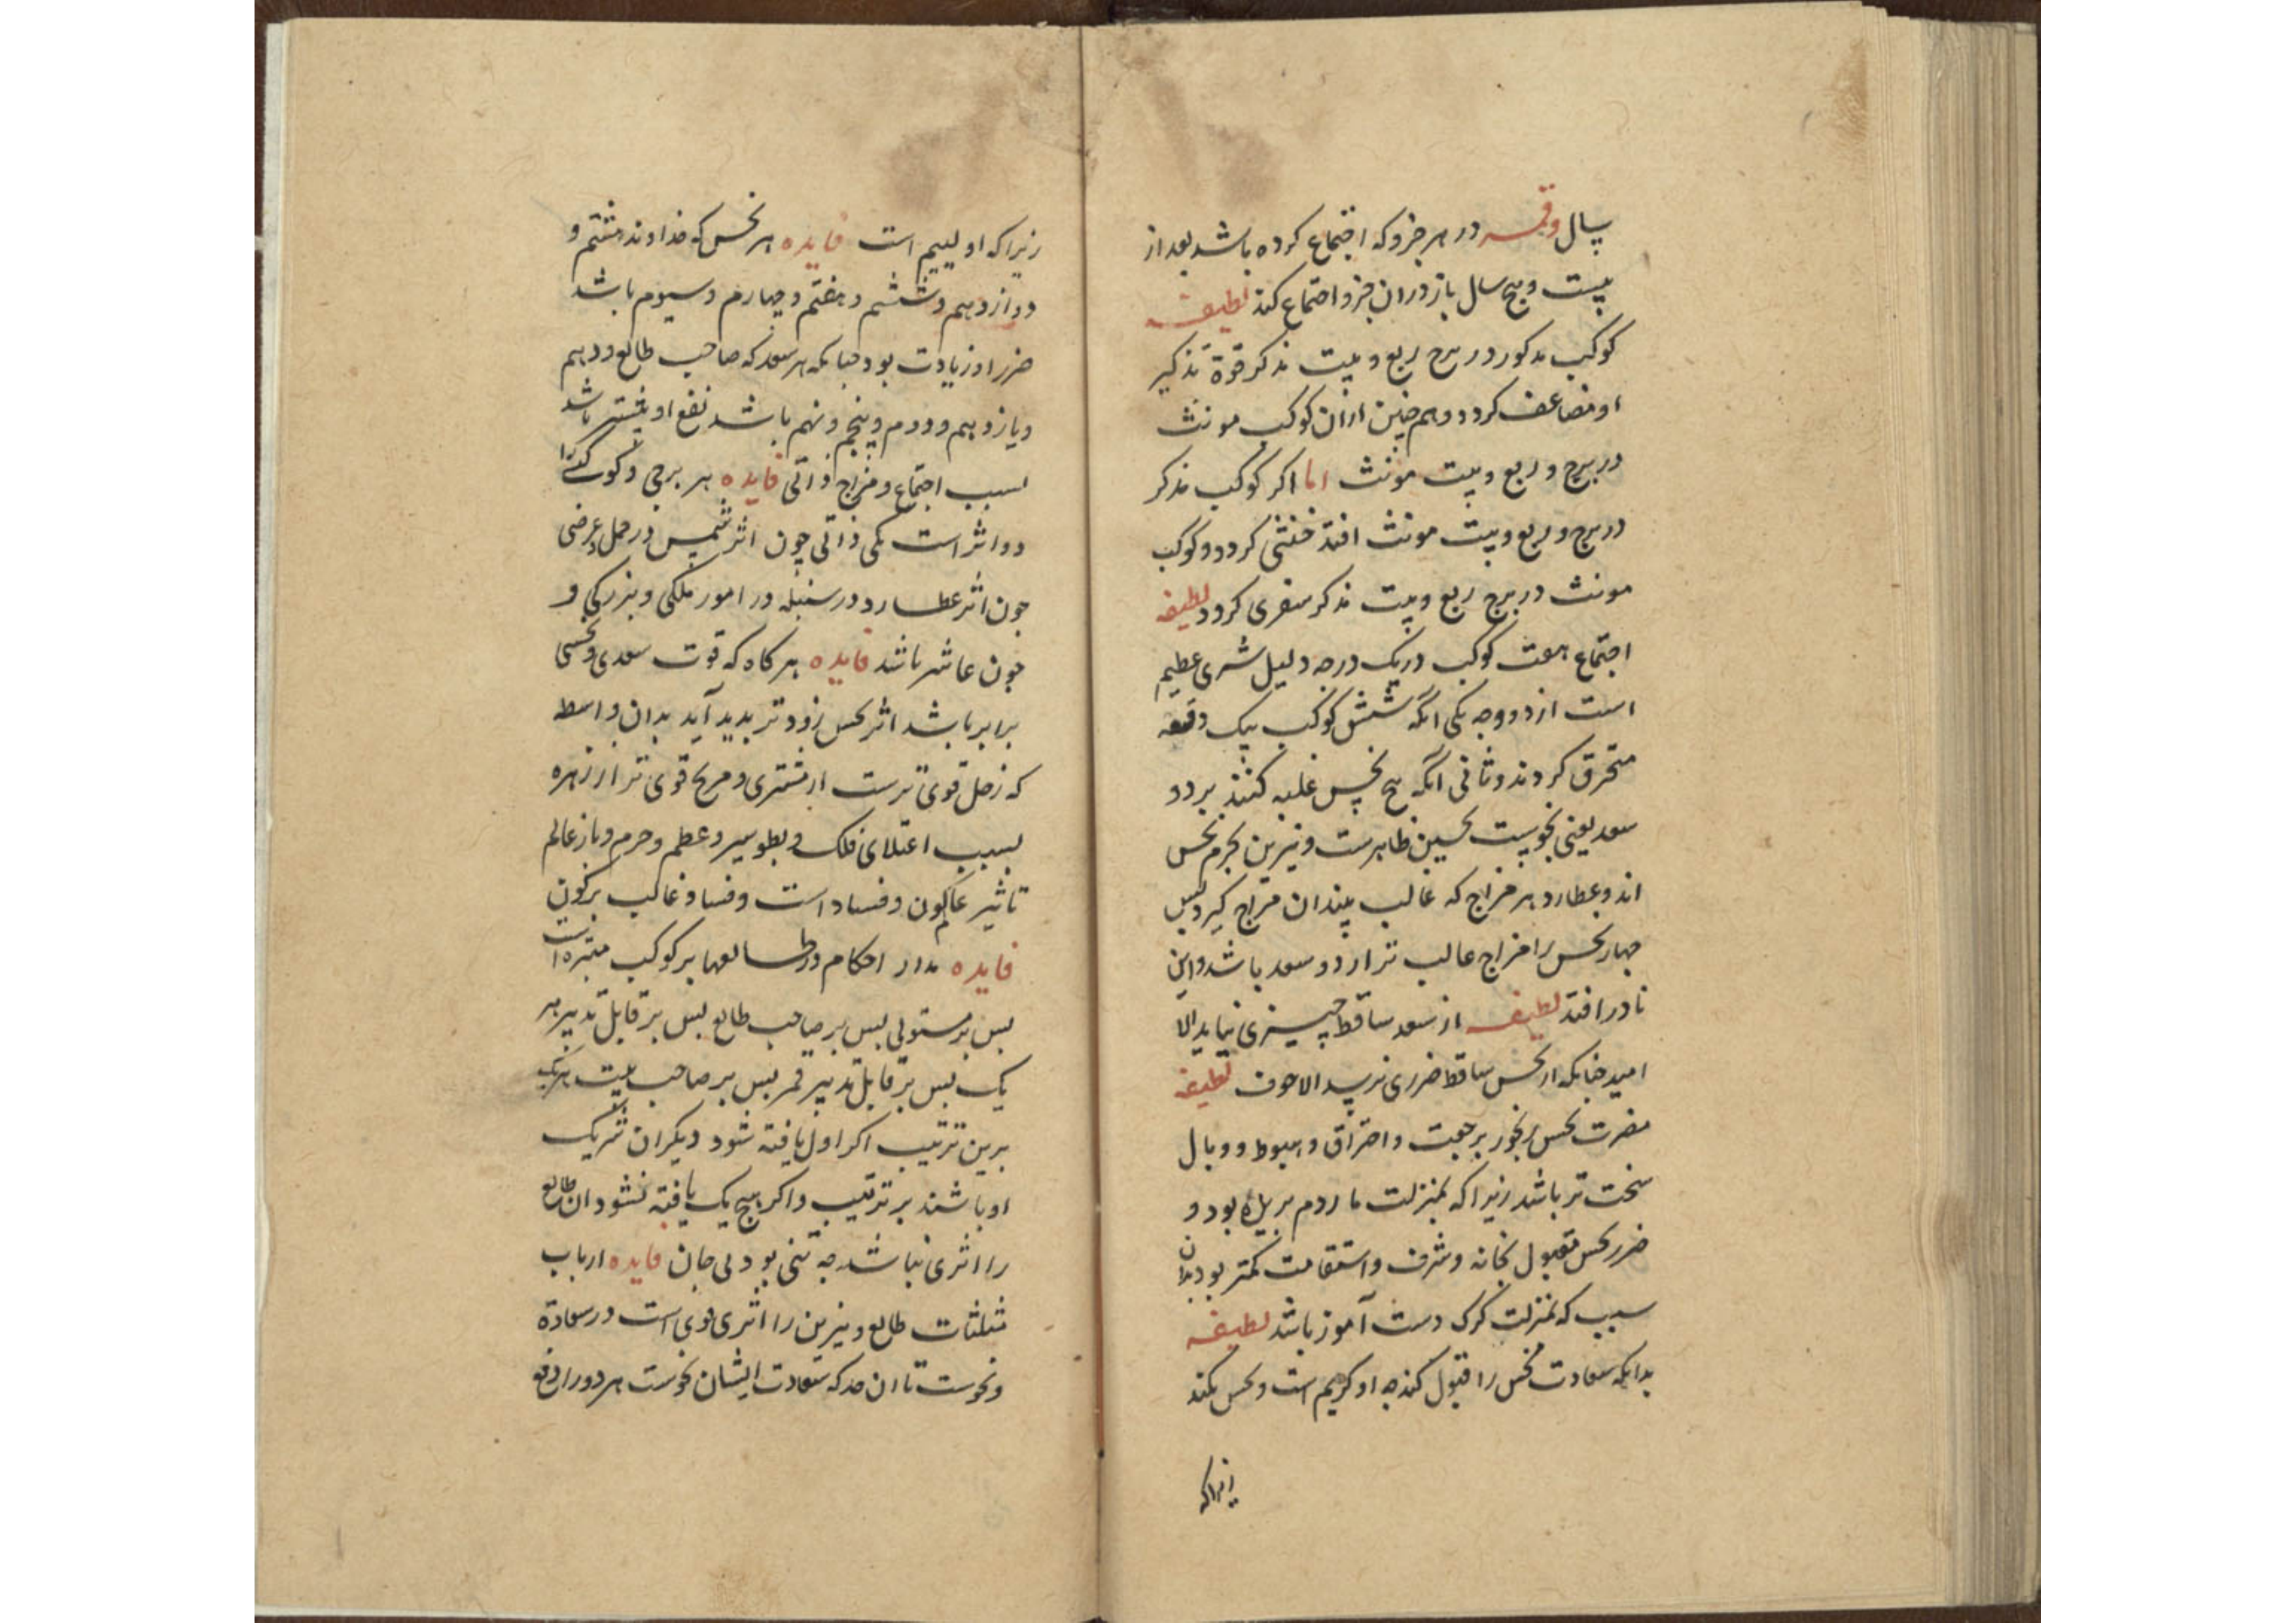 سال وقمر در هر جزوکه اجتماع کرده باشد بعد از
بیست و پنج سال باز دران جزو اجتماع کند لطیفه
کوکب مذکور در برج ربع و بیت مذکر قوة تذکیر
او مضاعف کردد و هم چنین ازان کوکب مونث
در برج و ربع و بیت مونث اما اکر کوکب مذکر
در برج و ربع و بیت مونث افتد خنثی کردد و کوکب
مونث در برج ربع و بیت مذکر سفری کردد لطیفه
اجتماع هفت کوکب در یک درجه دلیل شری عظیم
است از دو وجه یکی آنکه شش کوکب بیک دفعه
محترق کردند و ثانی آنکه پنج نحس غلبه کنند بر دو
سعد یعنی نحوست نحسین ظاهرست و نیرین بجرم نحس
اند و عطارد بهر مزاج که غالب بیند ان مزاج کیرد پس
چهار نحس را مزاج غالب تر از دو سعد باشد و این
نادر افتد لطیفه از سعد ساقط چیزی نیاید الا
امید چنانکه از نحس ساقط ضرری نرسد الا خوف لطیفه
مضرت نحس رنجور برجعت و احتراق و هبوط و وبال
سخت تر باشد زیرا که بمنزلت مار دم بریده بود و
ضرر نحس مقبول بخانه و شرف و استقامت کمتر بود بدان
سبب که بمنزلت کرک دست آموز باشد لطیفه
بدانکه سعادت نحس را قبول کند چه او کریم است و نحس نکند
زیراکه
زیرا که او لییم است فایده هر نحس که خداوند هشتم و
دوازدهم و ششم و هفتم و چهارم و سیوم باشد
ضرر او زیادت بود چنانکه هر سعد که صاحب طالع و دهم
و یازدهم و دوم و پنجم و نهم باشد نفع او بیشتر باشد
بسبب اجتماع و مزاج ذاتی فایده هر برجی و کوکبی را
دو اثر است یکی ذاتی چون اثر شمس در حمل و عرضی
چون اثر عطارد در سنبله در امور ملکی و بزرکی و
چون عاشر باشد فایده هر کاه که قوت سعدی و نحسی
برابر باشد اثر نحس زودتر بدید آید بدان واسطه
که زحل قوی ترست از مشتری و مریخ قوی تر از زهره
بسبب اعتلای فلک و بطو سیر و عظم و جرم و باز عالم
تاثیر عالم کون و فساد است و فساد غالب بر کون
فایده مدار احکام در طالعها بر کوکب مبتز است
بس بر مستولی بس بر صاحب طالع بس بر قابل تدبیر هر
یک بس بر قابل تدبیر قمر بس بر صاحب بیت هر یک
برین ترتیب اکر اول یافته شود دیکران شریک
او باشند بر ترتیب و اکر هیچ یک یافته نشود ان طالع
را اثری نباشد چه تنی بود بی جان فایده ارباب
مثلثات طالع و نیرین را اثری قوی است در سعادة
و نحوست تا ان حد که سعادت ایشان نحوست هر دو را دفع